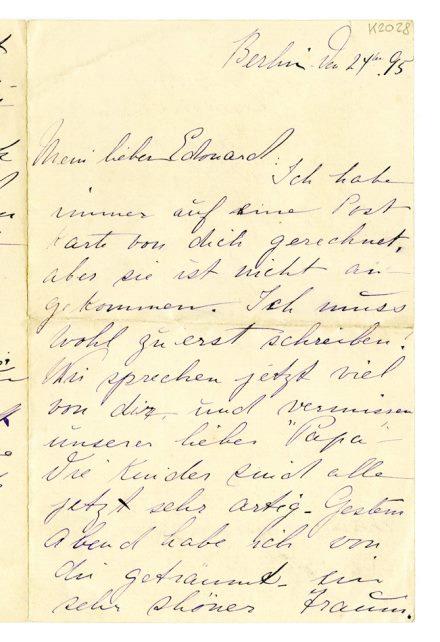 K2028
Berlin den 24ten 95
Mein lieber Edouard.
Ich habe
immer auf eine Post
karte von dich gerechnet,
aber sie ist nicht an-
gekommen. Ich muss
wohl zu erst schreiben!
Wir sprechen jetzt viel
von dir, und vermissen
unserer lieber "Papa" –
Die Kinder sind alle
jetzt sehr artig – Gestern
Abend habe ich von
dir geträumt – ein
sehr schöner Traum.